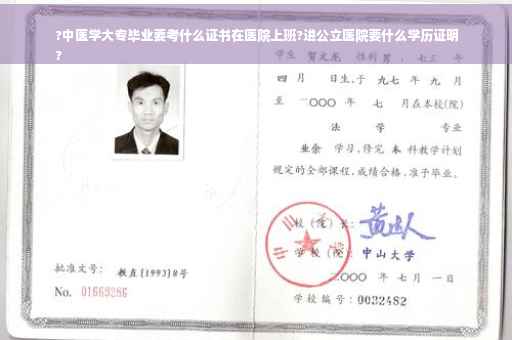 ?中医学大专毕业要考什么证书在医院上班?进公立医院要什么学历证明
?
学生 贺文龙 性别 男 , 七三 年
四 月 日生,于 九七 年 九 月
至 二〇〇〇 年 七 月在本校(院)
法 学 专业
业余 学习,修完 本 科教学计划
规定的全部课程,成绩合格,准予毕业。
校(院)长:
学校(院): 中山大学
批准文号: 教直[1993]8号
二〇〇〇 年 七 月 一 日
No. 01669286
学校编号: 0032482